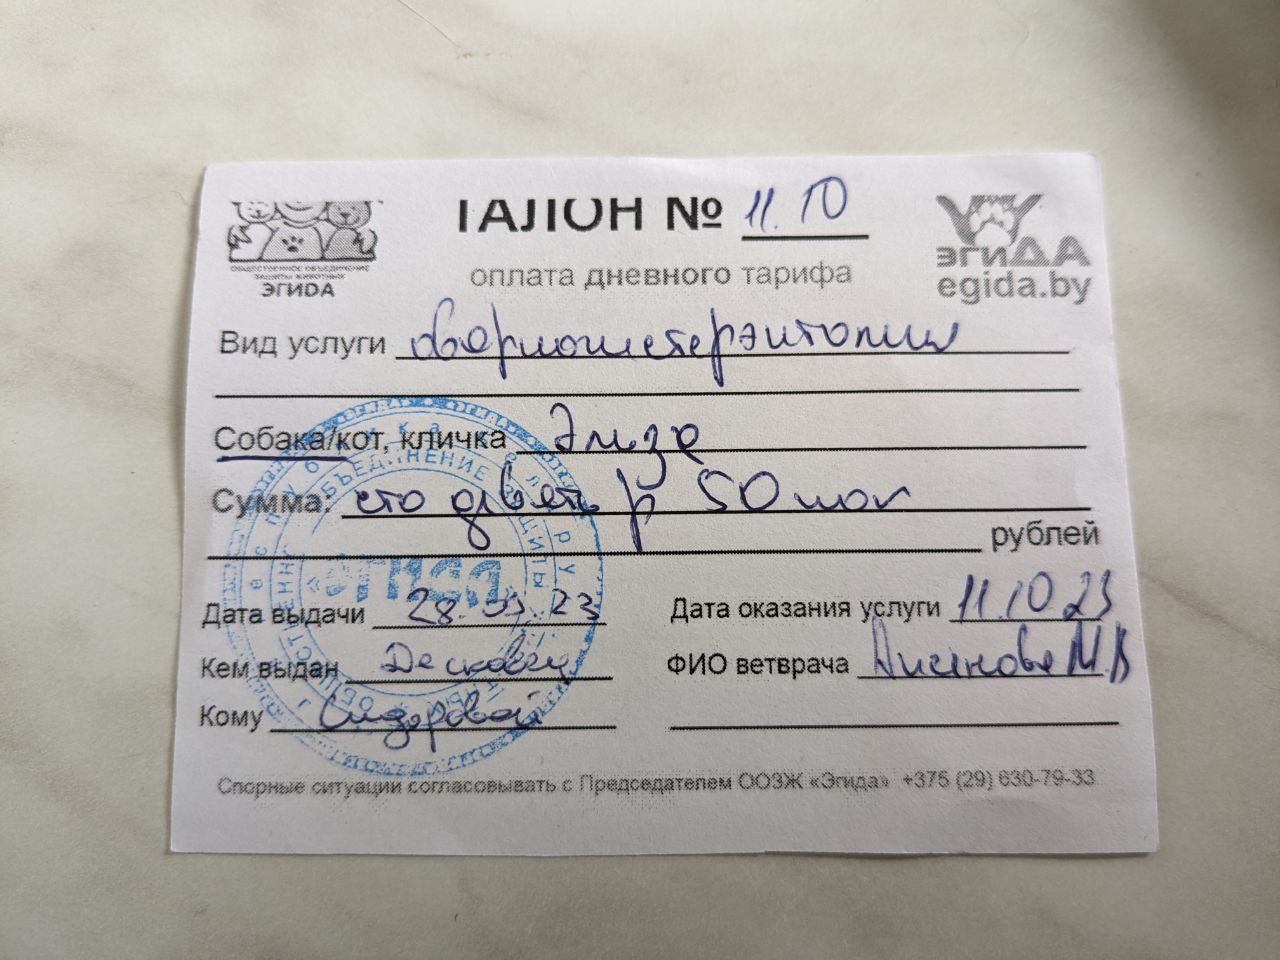 ТАЛОН № 11.10
оплата дневного тарифа
ОБЩЕСТВЕННОЕ ОБЪЕДИНЕНИЕ
ЗАЩИТЫ ЖИВОТНЫХ
ЭГИДА
эгиДА
egida.by
Вид услуги овариогистерэктомия
Собака/кот, кличка Элиза
Сумма: сто девять р 50 коп
рублей
Дата выдачи 28.09.23
Дата оказания услуги 11.10 23
Кем выдан
ФИО ветврача М.В
Кому Сидоровой
Спорные ситуации согласовывать с Председателем ООЗЖ «Эгида» +375 (29) 630-79-33